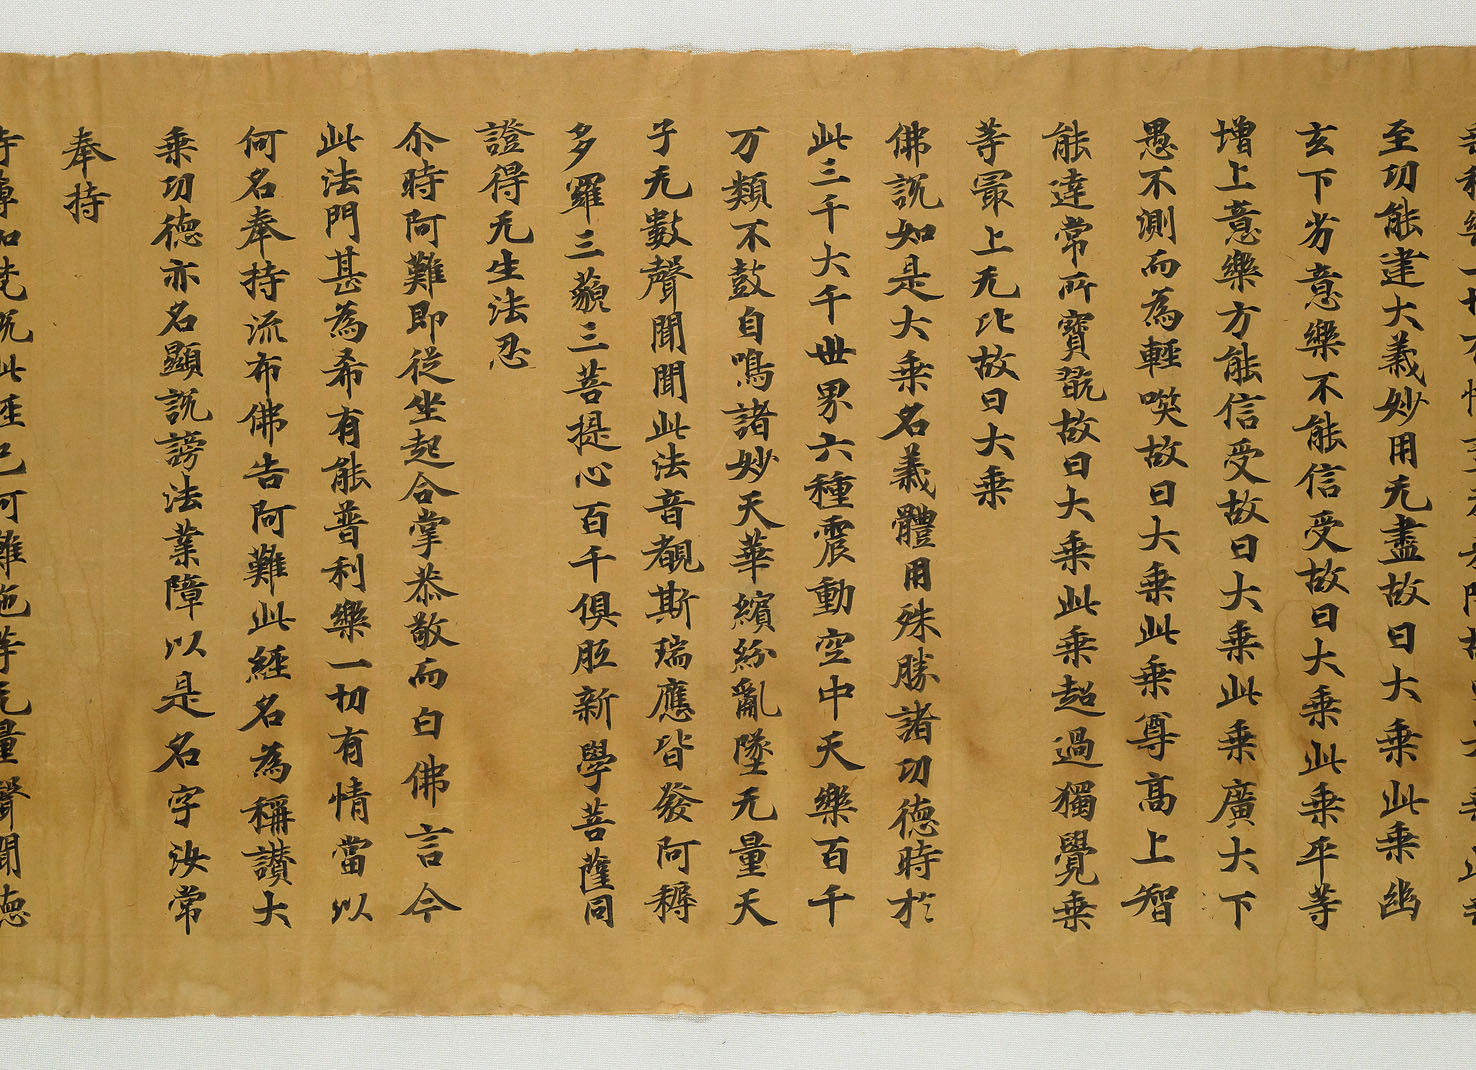 至功能建大義妙用无盡故曰大乘此乘幽
玄下劣意樂不能信受故曰大乘此乘平等
增上意樂方能信受故曰大乘此乘廣大下
愚不測而為輕唉故曰大乘此乘尊高上智
能達常所寶翫故曰大乘此乘超過獨覺乘
等冣上无比故曰大乘
佛說如是大乘名義體用殊勝諸功德時於
此三千大千世界六種震動空中天樂百千
万類不鼓自鳴諸妙天華繽紛亂墜无量天
子无數聲聞聞此法音覩斯瑞應皆發阿耨
多羅三藐三菩提心百千俱胝新學菩薩同
證得无生法忍
尒時阿難即從坐起合掌恭敬而白佛言今
此法門甚為希有能普利樂一切有情當以
何名奉持流布佛告阿難此經名為稱讃大
乘功德亦名顯說謗法業障以是名字汝常
奉持
說此經已阿難陁等无量聲聞德